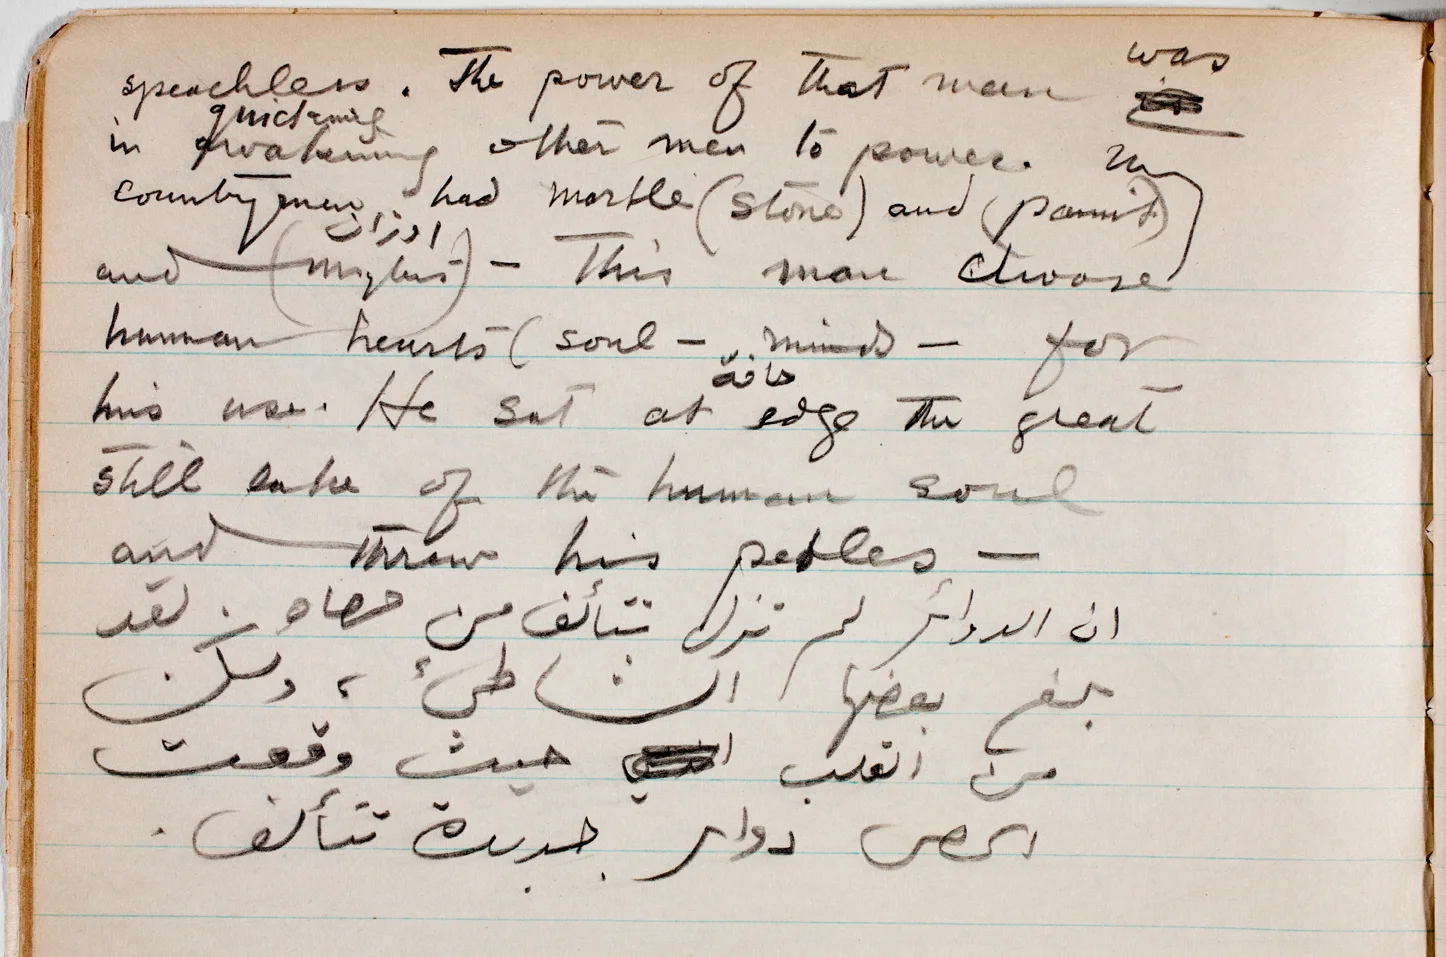 speechless. The power of that man was
quickening
in awakening other men to power. My
countrymen had marble (stone) and (paint)
اوزان
and (weights) — This man choose
human hearts (soul — minds — for
حافة
his use. He sat at edge the great
still lake of the human soul
and threw his pebles —
ان الدوائر لم تزل تتألف من حصاه. لقد
بلغ بعضها الشاطئ، ولكن
من القلب حيث وقعت
الحصى دوائر جديدة تتألف.